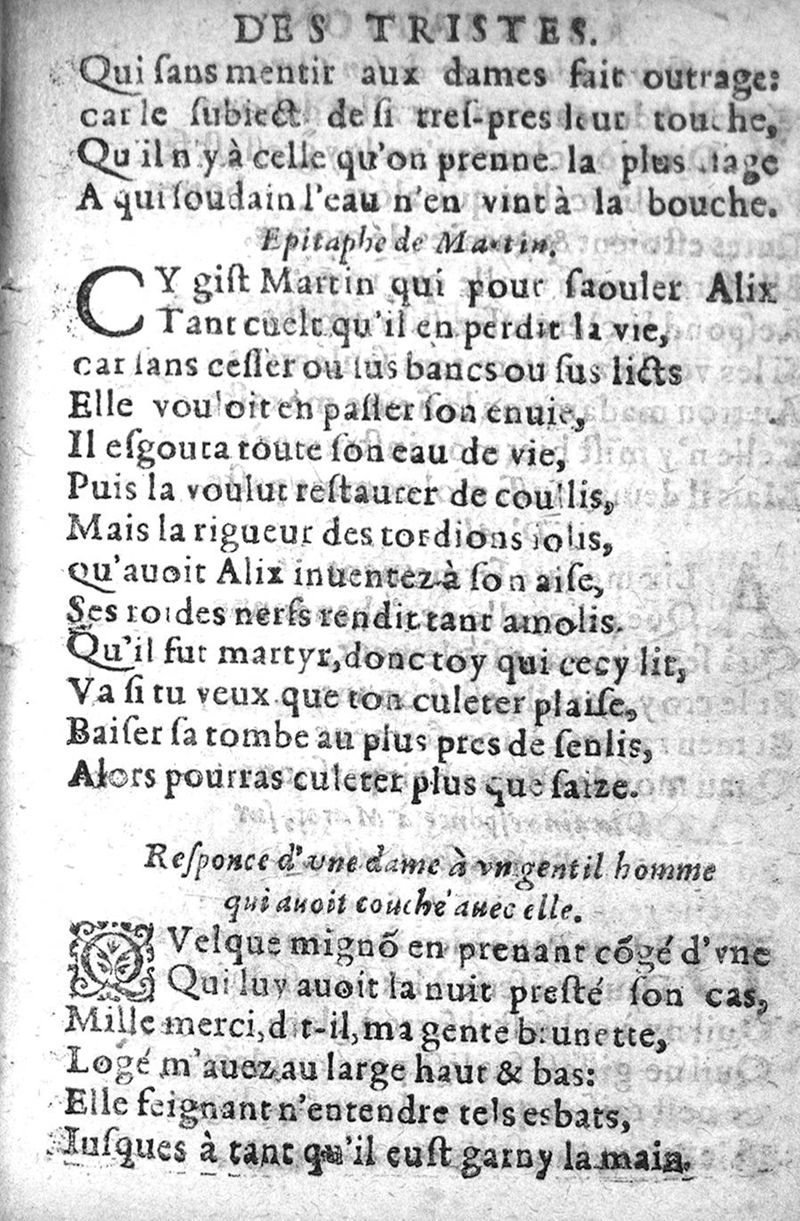 DES TRISTES.
Qui ſans mentir aux dames fait outrage:
car le ſubiect de ſi treſ-pres leur touche,
Qu'il n'y à celle qu'on prenne la plus ſage
A qui ſoudain l'eau n'en vint à la bouche.
Epitaphe de Martin.
CY giſt Martin qui pour ſaouler Alix
Tant cuelt qu'il en perdit la vie,
car ſans ceſſer ou ſus bancs ou ſus licts
Elle vouloit en paſſer ſon enuie,
Il eſgouta toute ſon eau de vie,
Puis la voulut reſtaurer de coullis,
Mais la rigueur des tordions iolis,
qu'auoit Alix inuentez à ſon aiſe,
Ses roides nerfs rendit tant amolis.
Qu'il fut martyr, donc toy qui cecy lit,
Va ſi tu veux que ton culeter plaiſe,
Baiſer ſa tombe au plus pres de ſenlis,
Alors pourras culeter plus que ſaize.
Reſponce d'vne dame à vn gentil homme
qui auoit couché auec elle.
QVelque mignõ en prenant cõgé d'vne
Qui luy auoit la nuit preſté ſon cas,
Mille merci, dit-il, ma gente brunette,
Logé m'auez au large haut & bas:
Elle feignant n'entendre tels esbats,
Iuſques à tant qu'il euſt garny la main.